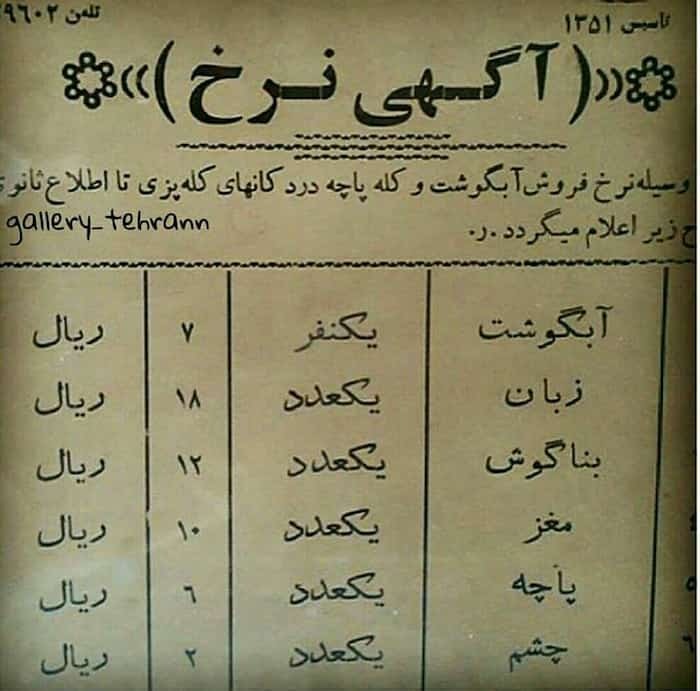 تاسیس ۱۳۵۱
تلفن ۹۶۰۲
(آگهی نرخ)
وسیله نرخ فروش آبگوشت و کله پاچه در دکانهای کله‌پزی تا اطلاع ثانوی
زیر اعلام میگردد.ر.
gallery_tehrann
آبگوشت یکنفر ۷ ریال
زبان یکعدد ۱۸ ریال
بناگوش یکعدد ۱۲ ریال
مغز یکعدد ۱۰ ریال
پاچه یکعدد ۶ ریال
چشم یکعدد ۲ ریال